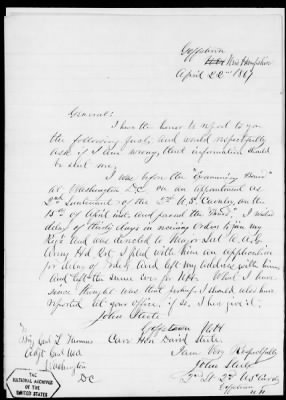 Goffstown
New Hampshire
April 22nd 1867
General:
I have the honor to report to you
the following facts, and would respectfully
ask if I am wrong, that information should
be sent me,
I was before the "Examining Board"
at Washington D.C. on an appointment as
2nd Lieutenant of the 2nd U.S. Cavalry, on the
15th of April inst, and passed the "Board", I wished
delay of thirty days in joining
Reg't and was directed to Major Genl
Army Hd Qrs, I filed with him an application
for delay of orders and left my address with him
and left the same for N.H. What I have
since thought was that perhaps I should also have
reported at your office, if so, I here give it,
John Steele
Goffstown N.H.
Care Hon David Steele.
I am Very Respectfully
John Steele
2nd Lt 2nd US Cavly
Goffstown
N.H.
To
Brig Genl L Thomas
Adjt Genl USA
Washington
DC
THE NATIONAL ARCHIVES
OF THE
UNITED STATES